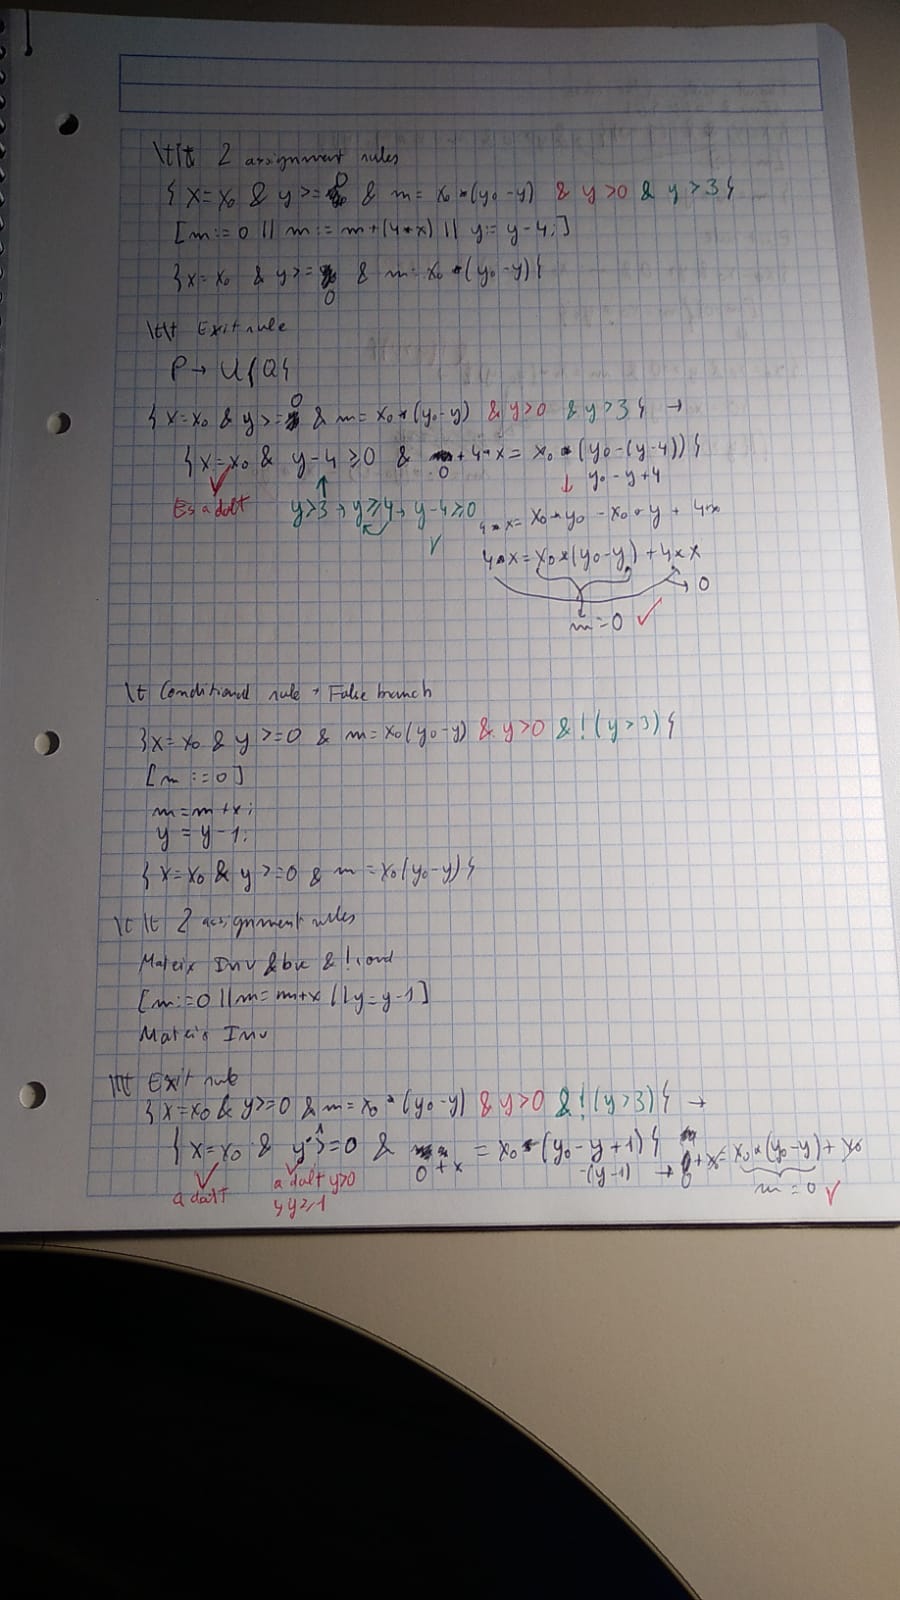 \t\t 2 assignment rules
{ x = x₀ & y >= 0 & m = x₀ * (y₀ - y) & y > 0 & y > 3 }
[m := 0 || m := m + (4 * x) || y := y - 4;]
{ x = x₀ & y >= 0 & m = x₀ * (y₀ - y) }
\t\t Exit rule
P → U{Q}
{ x = x₀ & y >= 0 & m = x₀ * (y₀ - y) & y > 0 & y > 3 } →
{ x = x₀ & y - 4 ≥ 0 & 0 + 4 * x = x₀ * (y₀ - (y - 4)) }
y₀ - y + 4
Es a dalt
y > 3 → y ≥ 4 → y - 4 ≥ 0 ✓
4 * x = x₀ * y₀ - x₀ * y + 4 * x
4 * x = x₀ * (y₀ - y) + 4 * x
0
m = 0 ✓
\t Conditional rule → False branch
{ x = x₀ & y >= 0 & m = x₀ (y₀ - y) & y > 0 & ! (y > 3) }
[m := 0]
m = m + x;
y = y - 1;
{ x = x₀ & y >= 0 & m = x₀ (y₀ - y) }
\t \t 2 assignment rules
Mateix Inv & bu & ! cond
[m := 0 || m = m + x || y = y - 1]
Mateix Inv
\t\t Exit rule
{ x = x₀ & y >= 0 & m = x₀ * (y₀ - y) & y > 0 & ! (y > 3) } →
{ x = x₀ & y - 1 >= 0 & 0 + x = x₀ * (y₀ - y + 1) }
- (y - 1) → 0 + x = x₀ * (y₀ - y) + x₀
a dalt
a dalt y > 0
y ≥ 1
m = 0 ✓